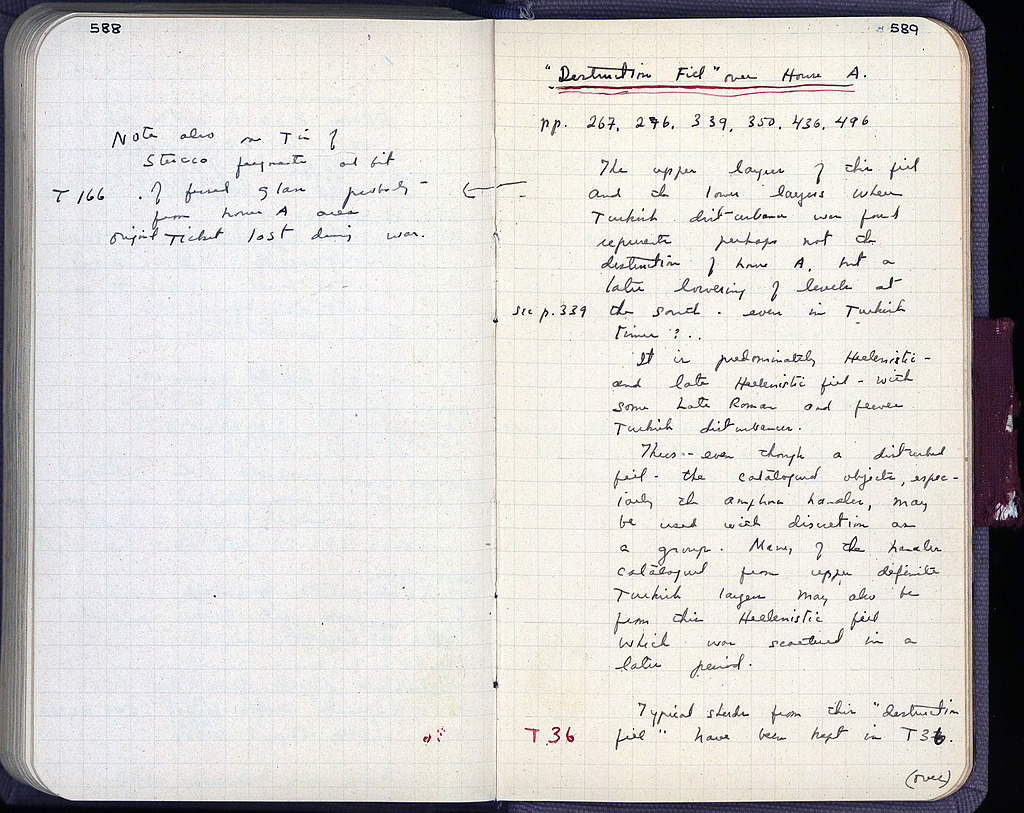 588
Note also on Tin of
Stucco fragments and bit
T 166 of fused glass probably
from house A area
original Ticket lost during war.
589
"Destruction Fill" over House A.
pp. 267, 276, 339, 350, 436, 496
The upper layers of this fill
and the lower layers where
Turkish disturbance was found
represents perhaps not the
destruction of house A, but a
later lowering of levels at
see p. 339 the south. even in Turkish
times?..
It is predominately Hellenistic-
and late Hellenistic fill - with
some Late Roman and fewer
Turkish disturbances.
Thus - even though a disturbed
fill - the catalogued objects, espec-
ially the amphora handles, may
be used with discretion as
a group. Many of the handles
catalogued from upper definite
Turkish layers may also be
from this Hellenistic fill
which was scattered in a
later period.
Typical sherds from this "destruction
T.36 fill" have been kept in T36.
(over)